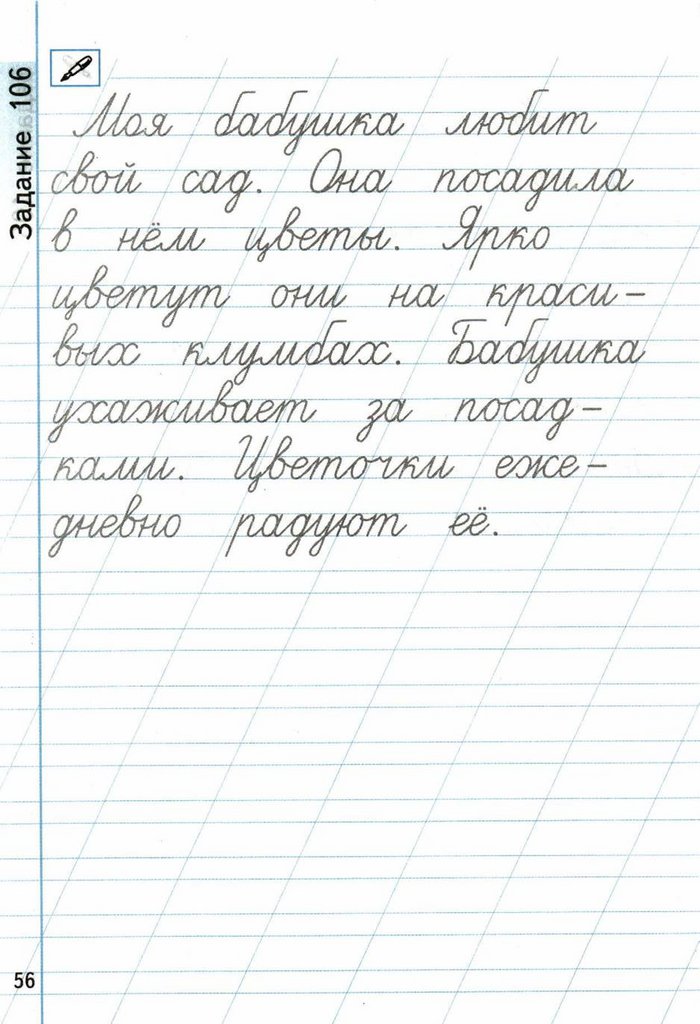 Задание 106
Моя бабушка любит
свой сад. Она посадила
в нём цветы. Ярко
цветут они на краси-
вых клумбах. Бабушка
ухаживает за посад-
ками. Цветочки еже-
дневно радуют её.
56